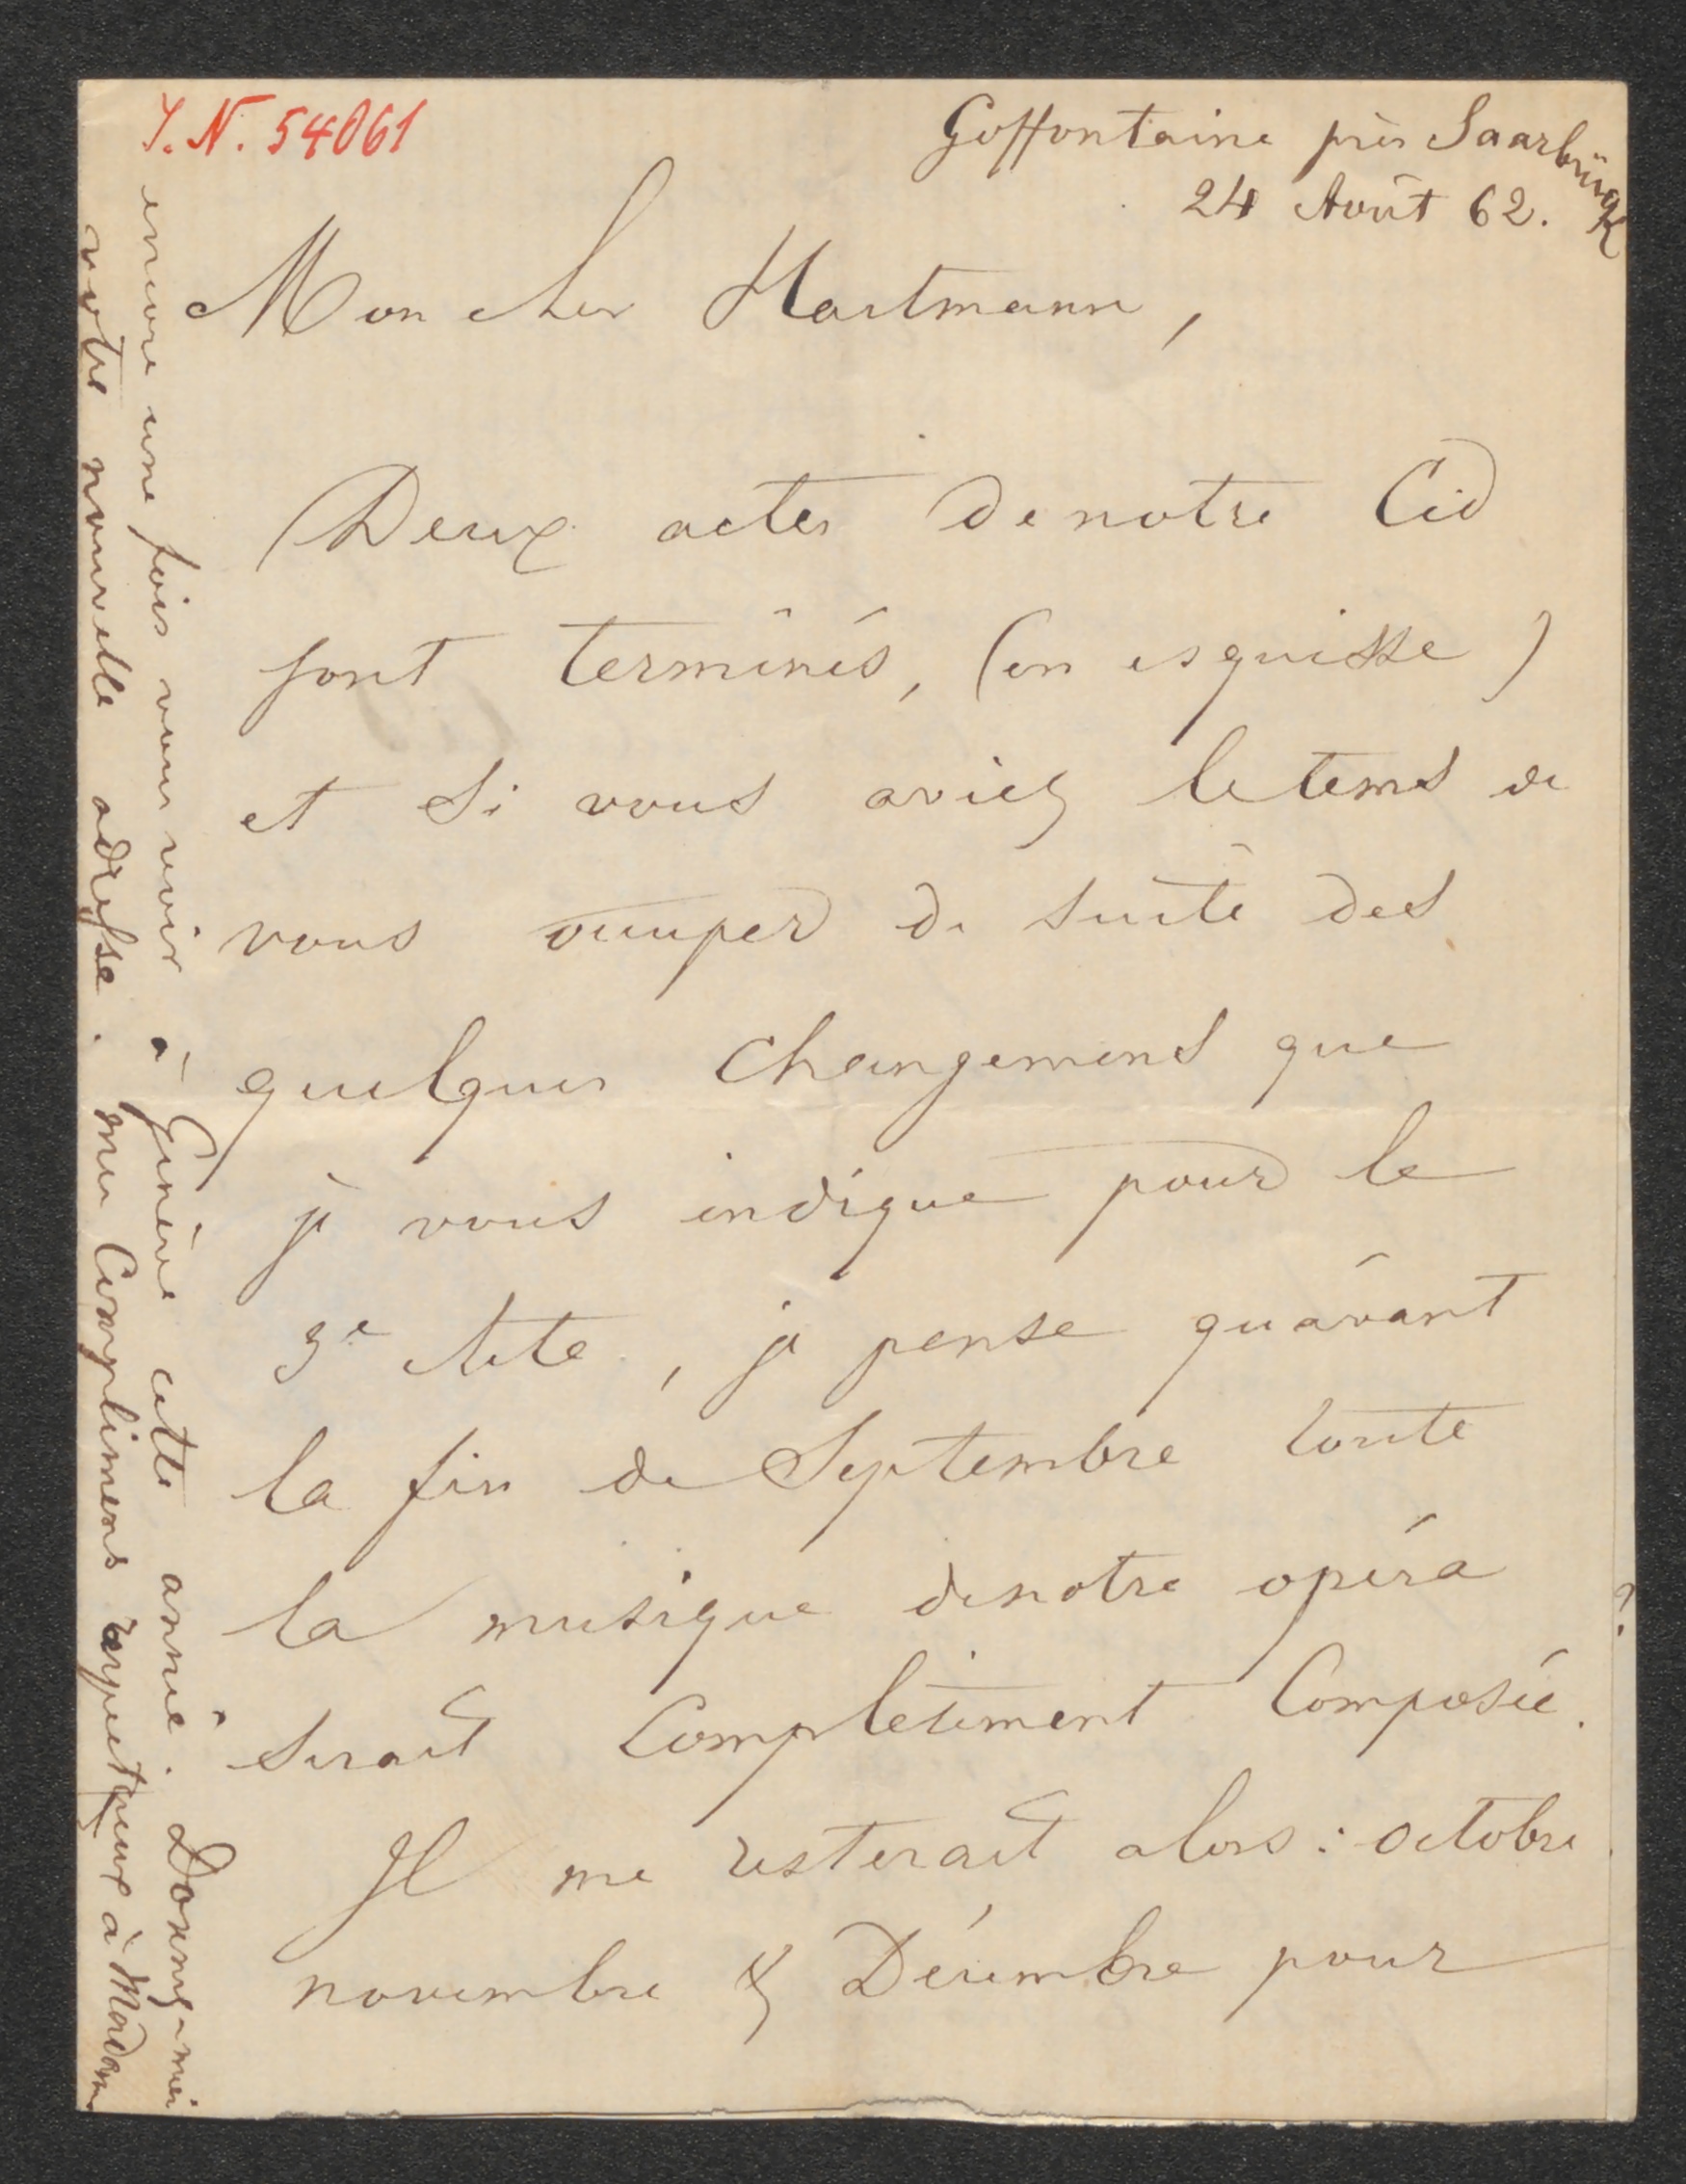 I. N. 54061
Goffontaine près Saarbrück
24 Août 62.
Mon cher Hartmann,
Deux actes de notre Cid
sont terminés, (en esquisse)
et si vous aviez le tems de
vous occuper de suite des
quelques changemens que
je vous indique pour le
3e Acte, je pense qu'avant
la fin de Septembre toute
la musique de notre opéra
serait complètement composée.
Il me resterait alors : octobre
novembre & Décembre pour
encore une fois vous voir à Genève cette année. Donnez-moi
votre nouvelle adresse. mes Complimens respectueux à Madame
?